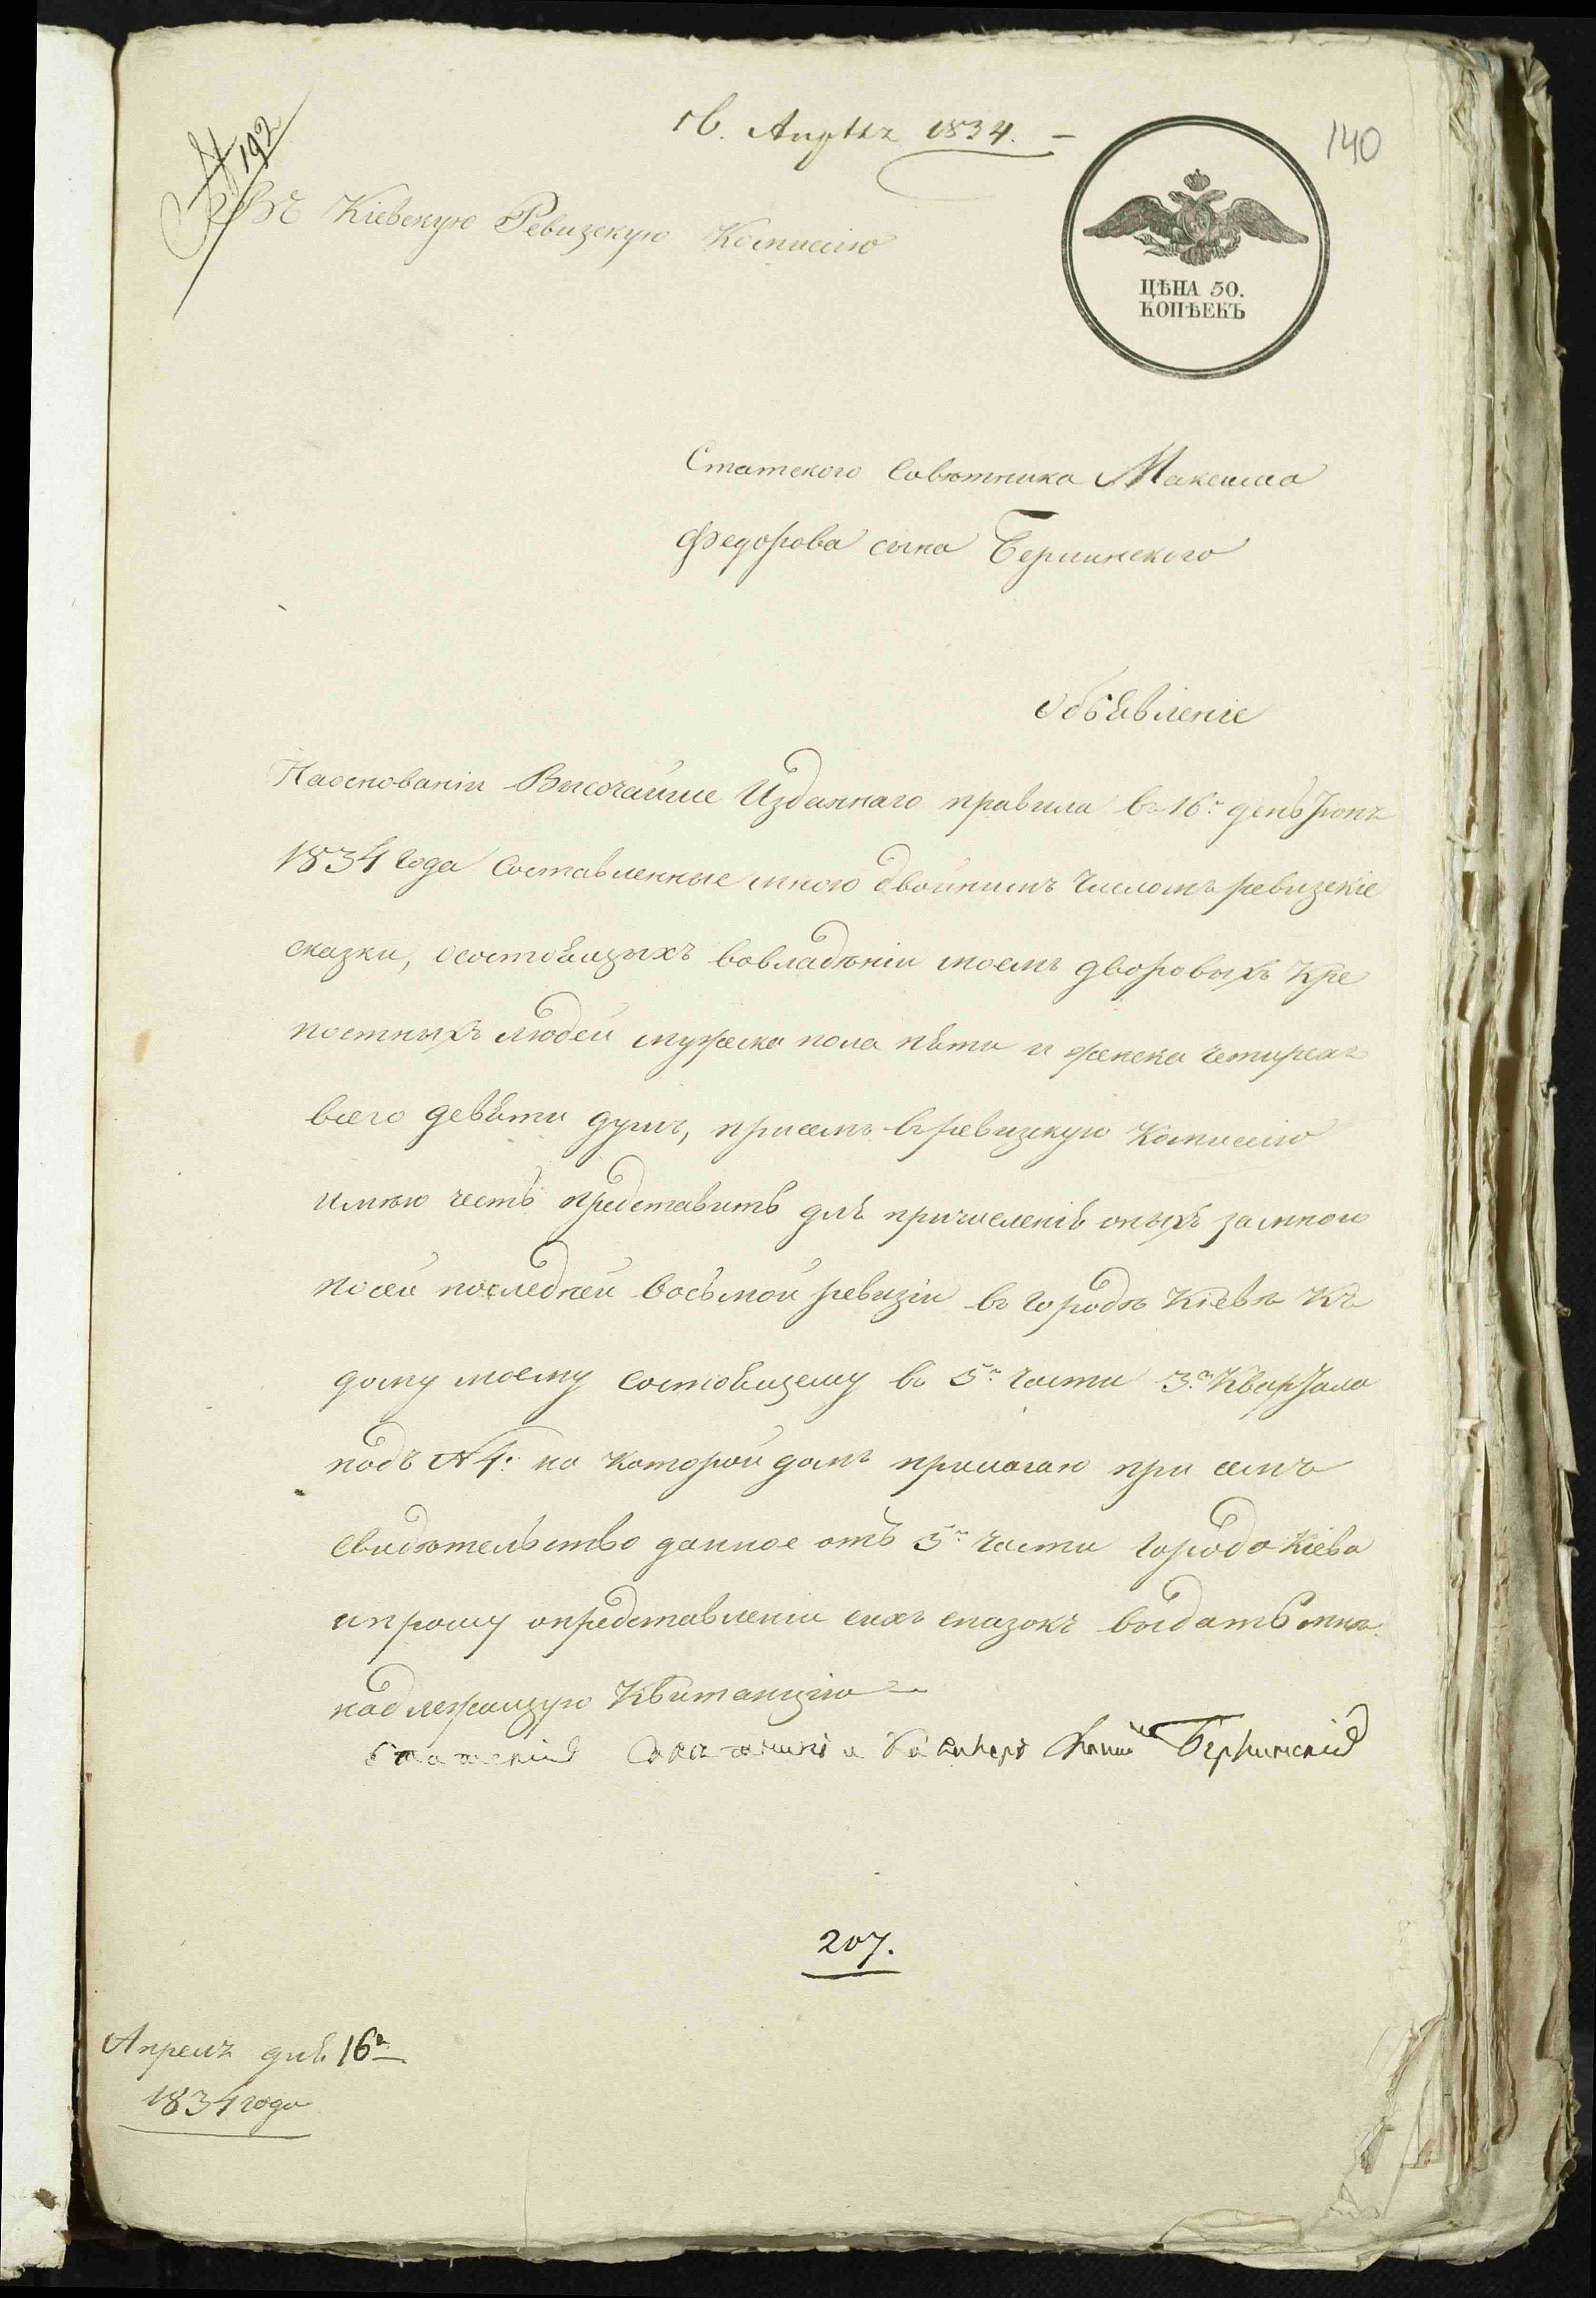 16. Апрѣля 1834. —
140
№ 192
Въ Кіевскую Ревизскую Комиссію
ЦѢНА 50.
КОПѢЕКЪ
Статского Совѣтника Максима
Федорова сына Берлинского
Объявленіе
Наосновании Высочайше Изданнаго правила въ 16й день Іюня
1834 года Составленные мною двойнимъ числомъ ревизскіе
сказки, осостоящихъ вовладѣніи моемъ дворовыхъ Кре
постныхъ людей мужеска пола пяти и женска четирехъ
всего девяти душъ, присемъ въревизскую Комиссію
имѣю честь представить для причисленія оныхъ замною
посей последней восьмой ревизіи въ городѣ Кіевѣ Къ
дому моему состоящему въ 5й части 3го Квартала
подъ № 4. на которой домъ прилагаю при семъ
свидѣтельство данное отъ 5й части города Кіева
ипрошу опредставленіи сихъ сказокъ выдать мнѣ
надлежащую Квитанцію —
Статскій Совѣтникъ и Кавалеръ Берлинскій
207.
Апреля дня 16го
1834 года